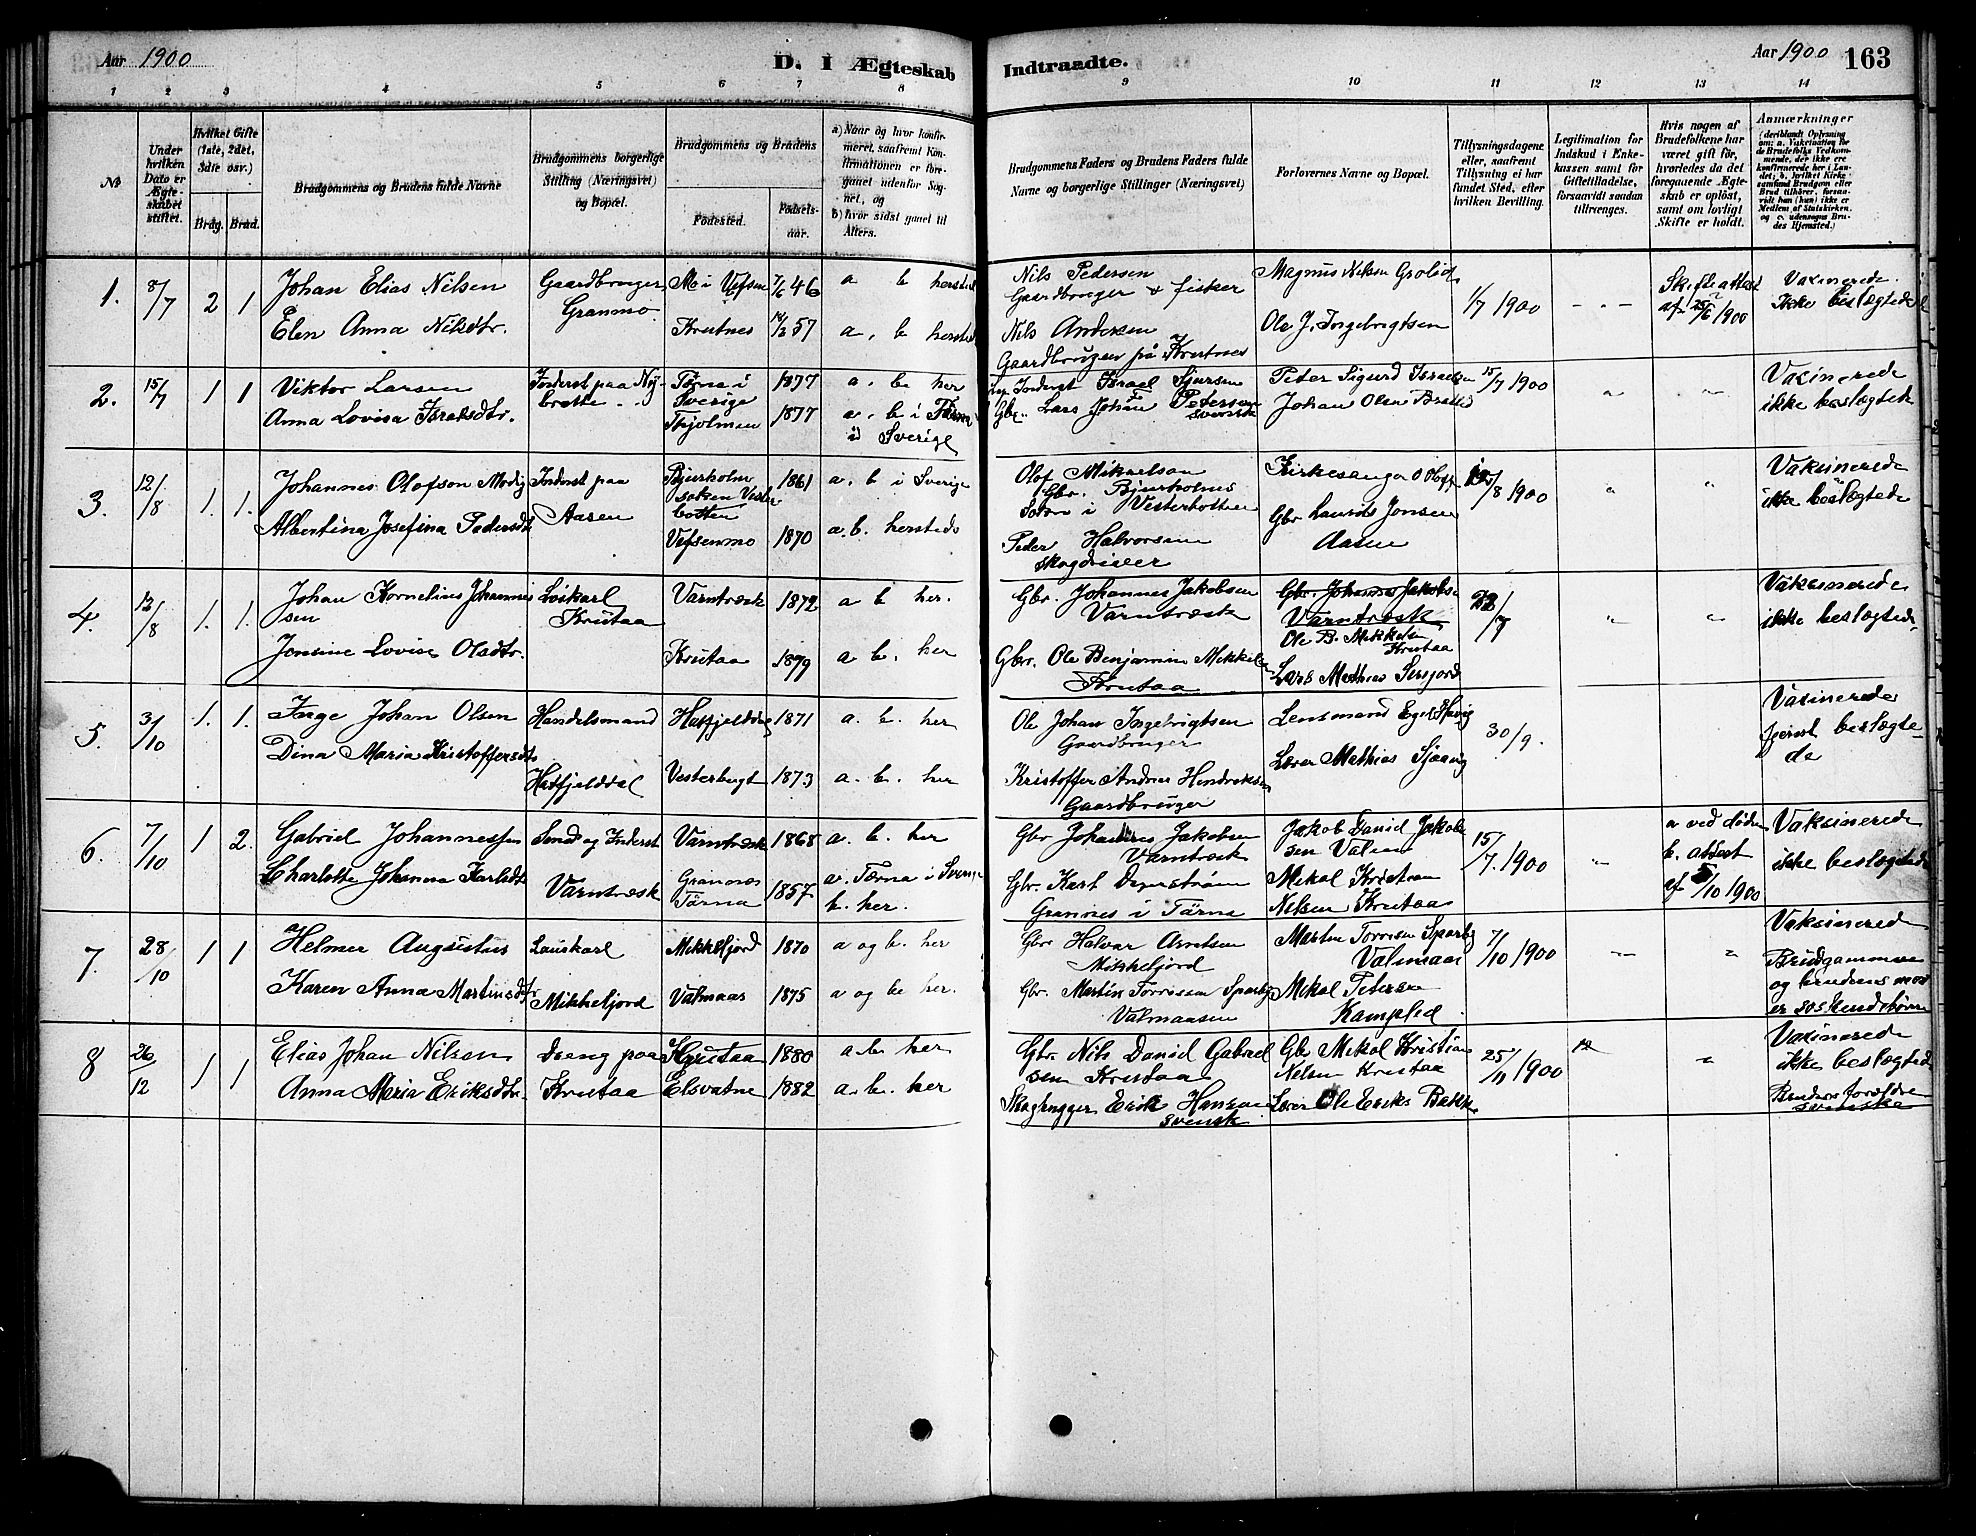 Aar 1900
D. i Ægteskab
Indtraadte.
Aar 1900 163
1 2 3 4 5 6 7 8 9 10 11 12 13 14
№
Under hvilken Dato er Ægteskabet stiftet.
Hvilket Gifte (1ste, 2det, 3dte osv.)
Brdg. Brud.
Brudgommens og Brudens fulde Navne
Brudgommens borgerlige Stilling (Næringsvei) og Bopæl.
Brudgommens og Brudens
Fødested.
Fødsels-aar.
a) Naar og hvor konfirmeret, saafremt Konfirmationen er foregaaet udenfor Sognet, og
b) hvor sidst gaaet til Alters.
Brudgommens Faders og Brudens Faders fulde Navne og borgerlige Stillinger (Næringsvei)
Forlovernes Navne og Bopæl.
Tillysningsdagene eller, saafremt Tillysning ei har fundet Sted, efter hvilken Bevilling.
Legitimation for Indskud i Enkekassen samt for Giftetilladelse, forsaavidt saadan tiltrænges.
Hvis nogen af Brudefolkene har været gift før, hvorledes da det foregaaende Ægteskab er opløst, samt om lovligt Skifte er holdt.
Anmærkninger
(deriblandt Oplysning om: a. Vakcination for de Brudefolks Vedkommende, der ikke ere konfirmerede her i Landet; b. hvilket Kirkesamfund Brudgom eller Brud tilhører, forsaavidt han (hun) ikke er Medlem af Statskirken, og c. udensogns Brudes Hjemsted.)
1. 8/7 2 1 Johan Elias Nilsen Gaardbruger Granmo. Mo i Vefsen 7/6 46 a b hersteds
Nils Pedersen Gaardbruger & fisker Magnus Nilsen Grolid 1/7 1900 - - - Skifteattest af 25/6 1900 Vaksinerede. Ikke beslegtede
Elen Anna Nilsdtr. Krutnes 57 a, b hersteds
Nils Andersen Gaardbruger på Krutnes Ole J. Ingebrigtsen
2. 15/7 1 1 Viktor Larsen Inderst paa Nybrotte. Tärna i Sverige 1877 a. b. her
Inderst Israel Sjursen Peter Sigurd Israelsen 15/7 1900 " " Vaksinerede ikke beslegtede
Anna Lovisa Israelsdtr. 1877 a. b i Tärna i Sverige
Gbr. Lars Johan Petersen svensk Johan Olsen Brattlid
3. 12/8 1. 1. Johannes Olofson Modig Inderst paa Aasen Bjurholm soken Vesterbotten 1861 a. b i Sverige
Olof Mikaelson Gbr. Bjurholms Soken i Vesterbotten Kirkesanger O Oloff 12/8 1900 " " Vaksinerede ikke beslægtede
Albertina Josefina Pedersdtr Vefsenmo 1870 a. b. hersteds
Peder Halvorsen skogdriver Gbr Laurits Jonsen Aasen
4. 12/8 1. 1. Johan Kornelius Johannessen Løskarl Krutaa Varntræsk 1872 a b her.
Gbr. Johannes Jakobsen Varntræsk Gbr. Johannes Jakobsen Varntræsk 22/7 " " Vaksinerede ikke beslegtede.
Ole B. Mikkelsen Krutaa
Jonsine Lovise Olsdtr. Krutaa 1879 a b. her
Gbr. Ole Benjamin Mikkelsen Krutaa Lars Mathias
5. 3/10 1. 1. Inge Johan Olsen Handelsmand Hatfjelddal Hatfjelddal 1871 a. b. her
Ole Johan Ingebrigtsen Gaardbruger Lensmand Egel Høvig 30/9. Vaksinerede fjernt beslegtede
Dina Maria Kristoffersdtr Vesterbugt 1873 a. b. her
Kristoffer Andreas Hendriksen Gaardbruger Lærer Mathias Sjaavig
6. 7/10 1 2. Gabriel Johannessen Smed og Inderst Varntræsk Varntræsk 1868 a. b. her
Gbr Johannes Jakobsen Varntræsk Jakob Daniel Jakobsen Valmaas 15/7. 1900 " a ved døden b. attest af 5/10 1900 Vaksinerede ikke beslegtede
Charlotte Johanna Karlsdtr Grannæs Tärna 1857 a. Tærna i Sverige b. her.
Gbr. Karl Grannes i Tärna Mikal Kristian Nilsen Krutaa
7. 28/10 1 1 Helmer Augustus Løskarl Mikkeljord Mikkeljord 1870 a og b. her
Gbr Halvar Arntsen Mikkeljord Martin Torrisen Sparby Valmaas 7/10 1900 - " Vaksinerede Brudgommen og brudens mor er søskendebørn
Karen Anna Martinsdtr. Valmaas 1875 a og b her.
Gbr. Martin Torrisen Sparby Valmaasen Mikal Petersen Kamplid.
8 26/12 1 1 Elias Johan Nilsen dreng paa Krutaa Krutaa 1880 a. b. her
Gbr. Nils Daniel Gabrielsen Krutaa Gbr Mikal Kristian Nilsen Krutaa 25/11 1900 " Vaksinerede ikke beslegtede
Brudens forældre svenske
Anna Maria Eriksdtr. Elsvatne 1882 a. b. her
Skoghugger Erik Hansen svensk Lærer Ole Eriks Bakk.